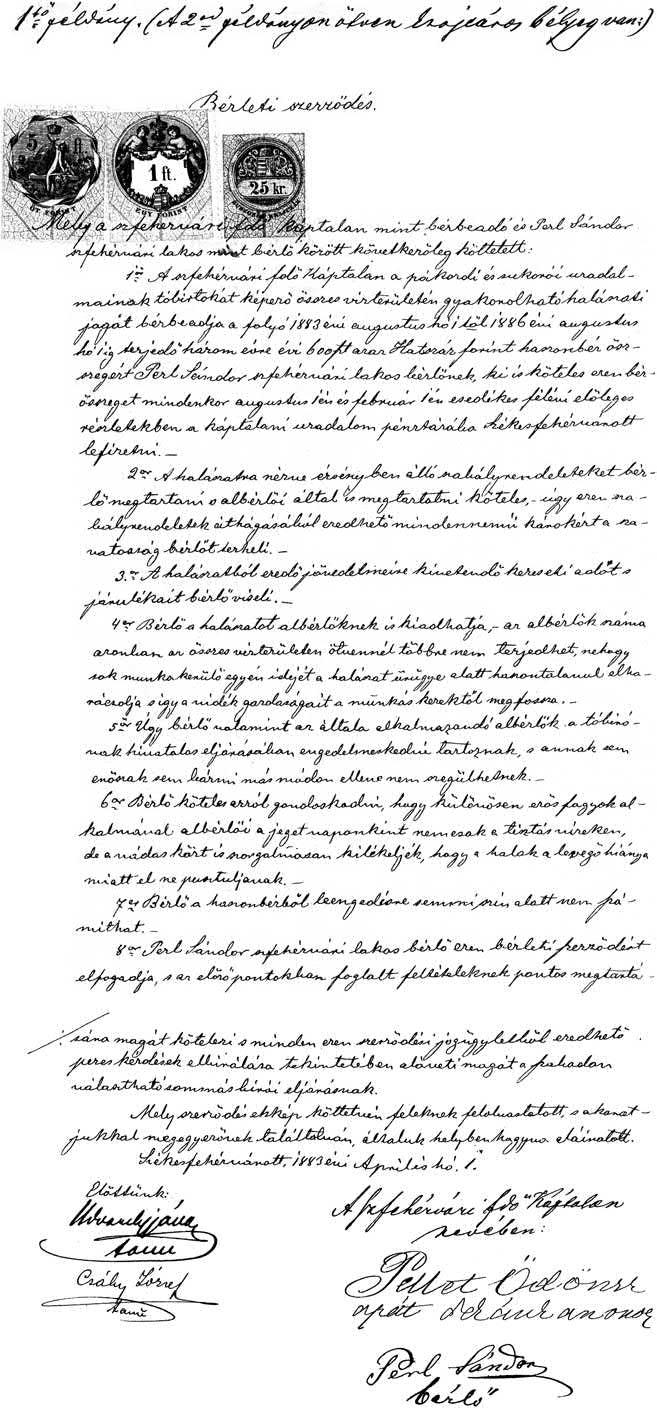 1ső példány. (A 2od példányon ötven krajcáros bélyeg van:)
Bérleti szerződés.
5 ft.
ÖT FORINT
1 ft.
EGY FORINT
25 kr.
Mely a szfehérvári fdő káptalan mint bérbeadó és Perl Sándor
szfehérvári lakos mint bérlő között következőleg köttetett:
1ör A szfehérvári fdő Káptalan a pákozdi és sukorói uradal-
mainak tóbirtokát képező összes vizterületén gyakorolható halászati
jogát bérbeadja a folyó 1883 évi augustus hó 1től 1886 évi augustus
hó 1ig terjedő három évre évi 600ft azaz Hatszáz forint haszonbér ösz-
szegért Perl Sándor szfehérvári lakos bérlőnek, ki is köteles ezen bér-
összeget mindenkor augustus 1én és február 1én esedékes félévi előleges
részletekben a káptalani uradalom pénztárába Székesfehérvárott
lefizetni. —
2or A halászatra nézve érvényben álló szabályrendeleteket bér-
lő megtartani s albérlői által is megtartatni köteles, - úgy ezen sza-
bályrendeletek áthágásából eredhető mindennemű károkért a sza-
vatosság bérlőt terheli. —
3or A halászatból eredő jövedelmeire kivetendő kereseti adót s
járulékait bérlő viseli. —
4er Bérlő a halászatot albérlőknek is kiadhatja, - az albérlők száma
azonban az összes vizterületen ötvennél többre nem terjedhet, nehogy
sok munkakerülő egyén idejét a halászat ürügye alatt haszontalanul elha-
rácsolja s igy a vidék gazdaságait a munkás kezektől megfossza. —
5ör Úgy bérlő valamint az általa alkalmazandó albérlők a tóbiró-
nak hivatalos eljárásában engedelmeskedni tartoznak, s annak sem
erőszak sem bármi más módon ellene nem szegülhetnek. —
6or Bérlő köteles arról gondoskodni, hogy különösen erős fagyok al-
kalmával albérlői a jeget naponkint nemcsak a tisztás vizeken,
de a nádas közt is szorgalmasan kilékeljék, hogy a halak a levegő hiánya
miatt el ne pusztuljanak. —
7er Bérlő a haszonbérből leengedésre semmi szin alatt nem szá-
mithat. —
8or Perl Sándor szfehérvári lakos bérlő ezen bérleti szerződést
elfogadja, s az előző pontokban foglalt feltételeknek pontos megtartá-
sára magát kötelezi s minden ezen szerződési jogügyletből eredhető
peres kérdések elbirálása tekintetében aláveti magát a szabadon
választható sommás birói eljárásnak.
Mely szerződés ekkép köttetvén feleknek felolvastatott, s akarat-
jukkal megegyezőnek találtatván, általuk helybenhagyva aláiratott.
Székesfehérvárott, 1883 évi Április hó 1.
Előttünk:
Udvardy János
tanu
Csály József
tanu
A szfehérvári fdő Káptalan
nevében:
Pellet Ödön
apát
Perl Sándor
bérlő